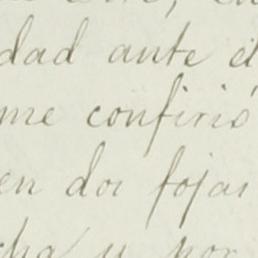 dad ante el
me confirió
en dos fojas
cha y por